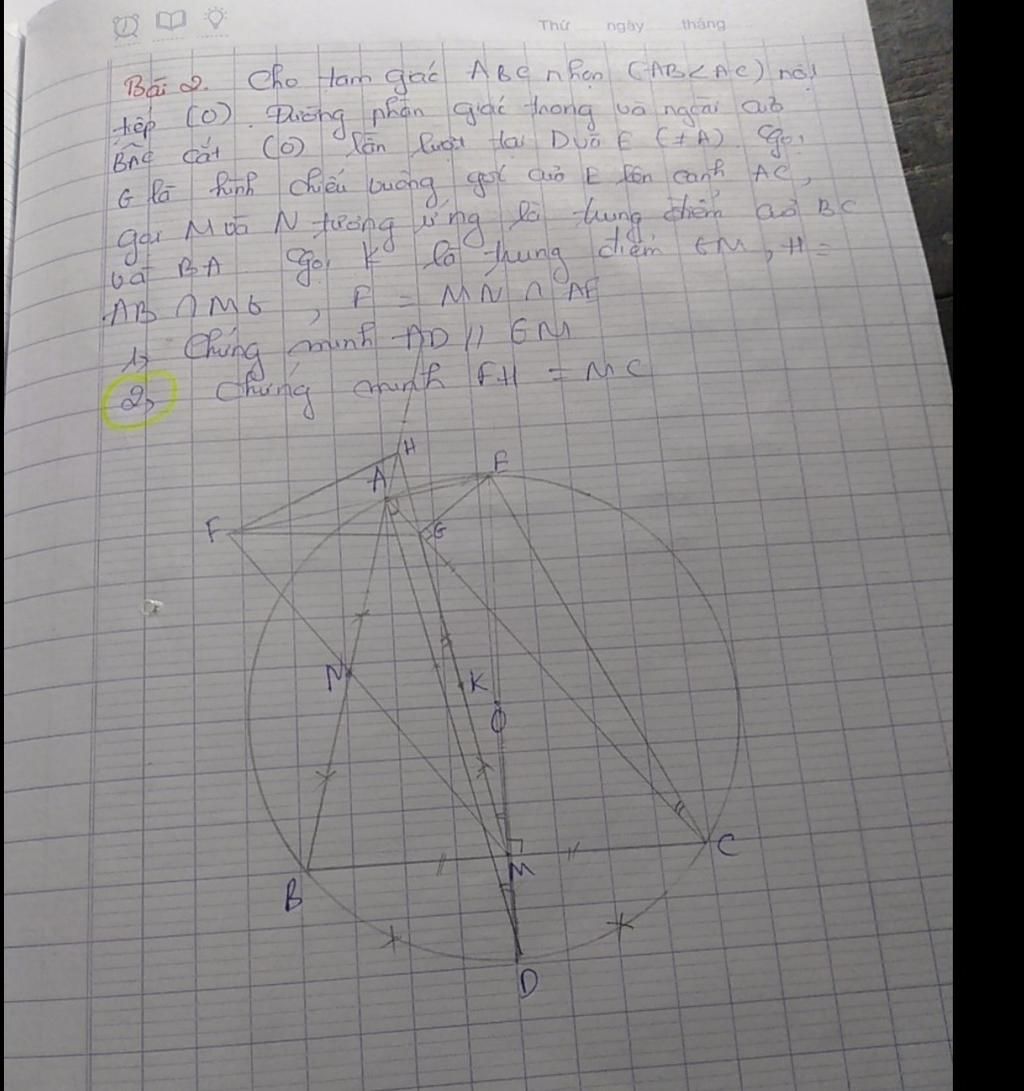 Thứ ngày tháng
Bài 2. Cho tam giác ABC nhọn (AB < AC) nội
tiếp (O). Đường phân giác trong và ngoài của
BAC cắt (O) lần lượt tại D và E (≠A). Gọi
G là hình chiếu vuông góc của E lên cạnh AC,
gọi M và N tương ứng là trung điểm của BC
và BA Gọi K là trung điểm GM, H =
AB ∩ MG, F = MN ∩ AE
1, Chứng minh AD // GM
2, Chứng minh FH = MC
H
A
E
F
G
N
K
O
M
C
B
D